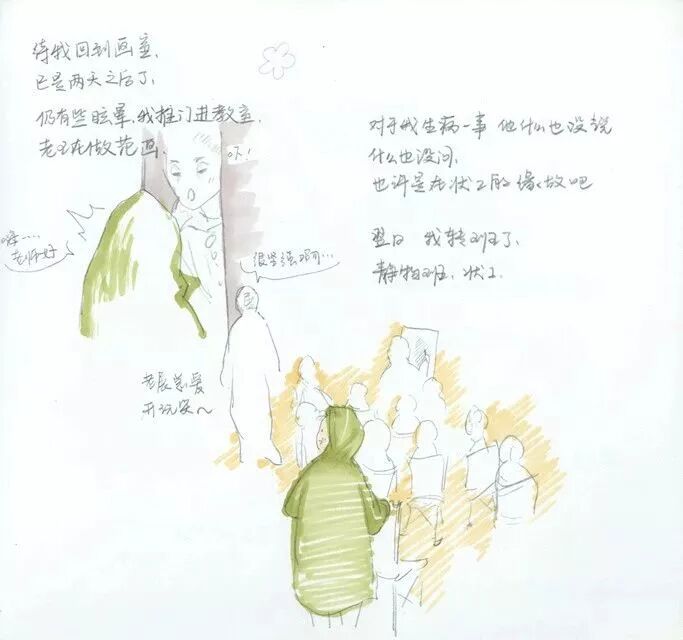 待我回到画室，
已是两天之后了，
仍有些眩晕，我推门进教室，
老王在做范画，
吓！
老师好
很坚强啊…
老展总爱
开玩笑～
对于我生病一事 他什么也没说
什么也没问，
也许是在状2的缘故吧
翌日 我转班了，
静物班，状2.